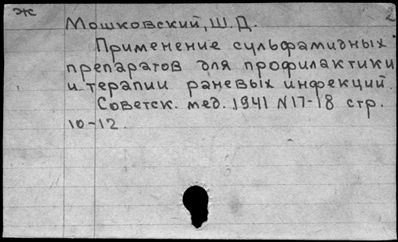 ж 2
Мошковский, Ш.Д.
Применение сульфамидных
препаратов для профилактики
и терапии раневых инфекций.
Советск. мед. 1941 N17-18 стр.
10-12.